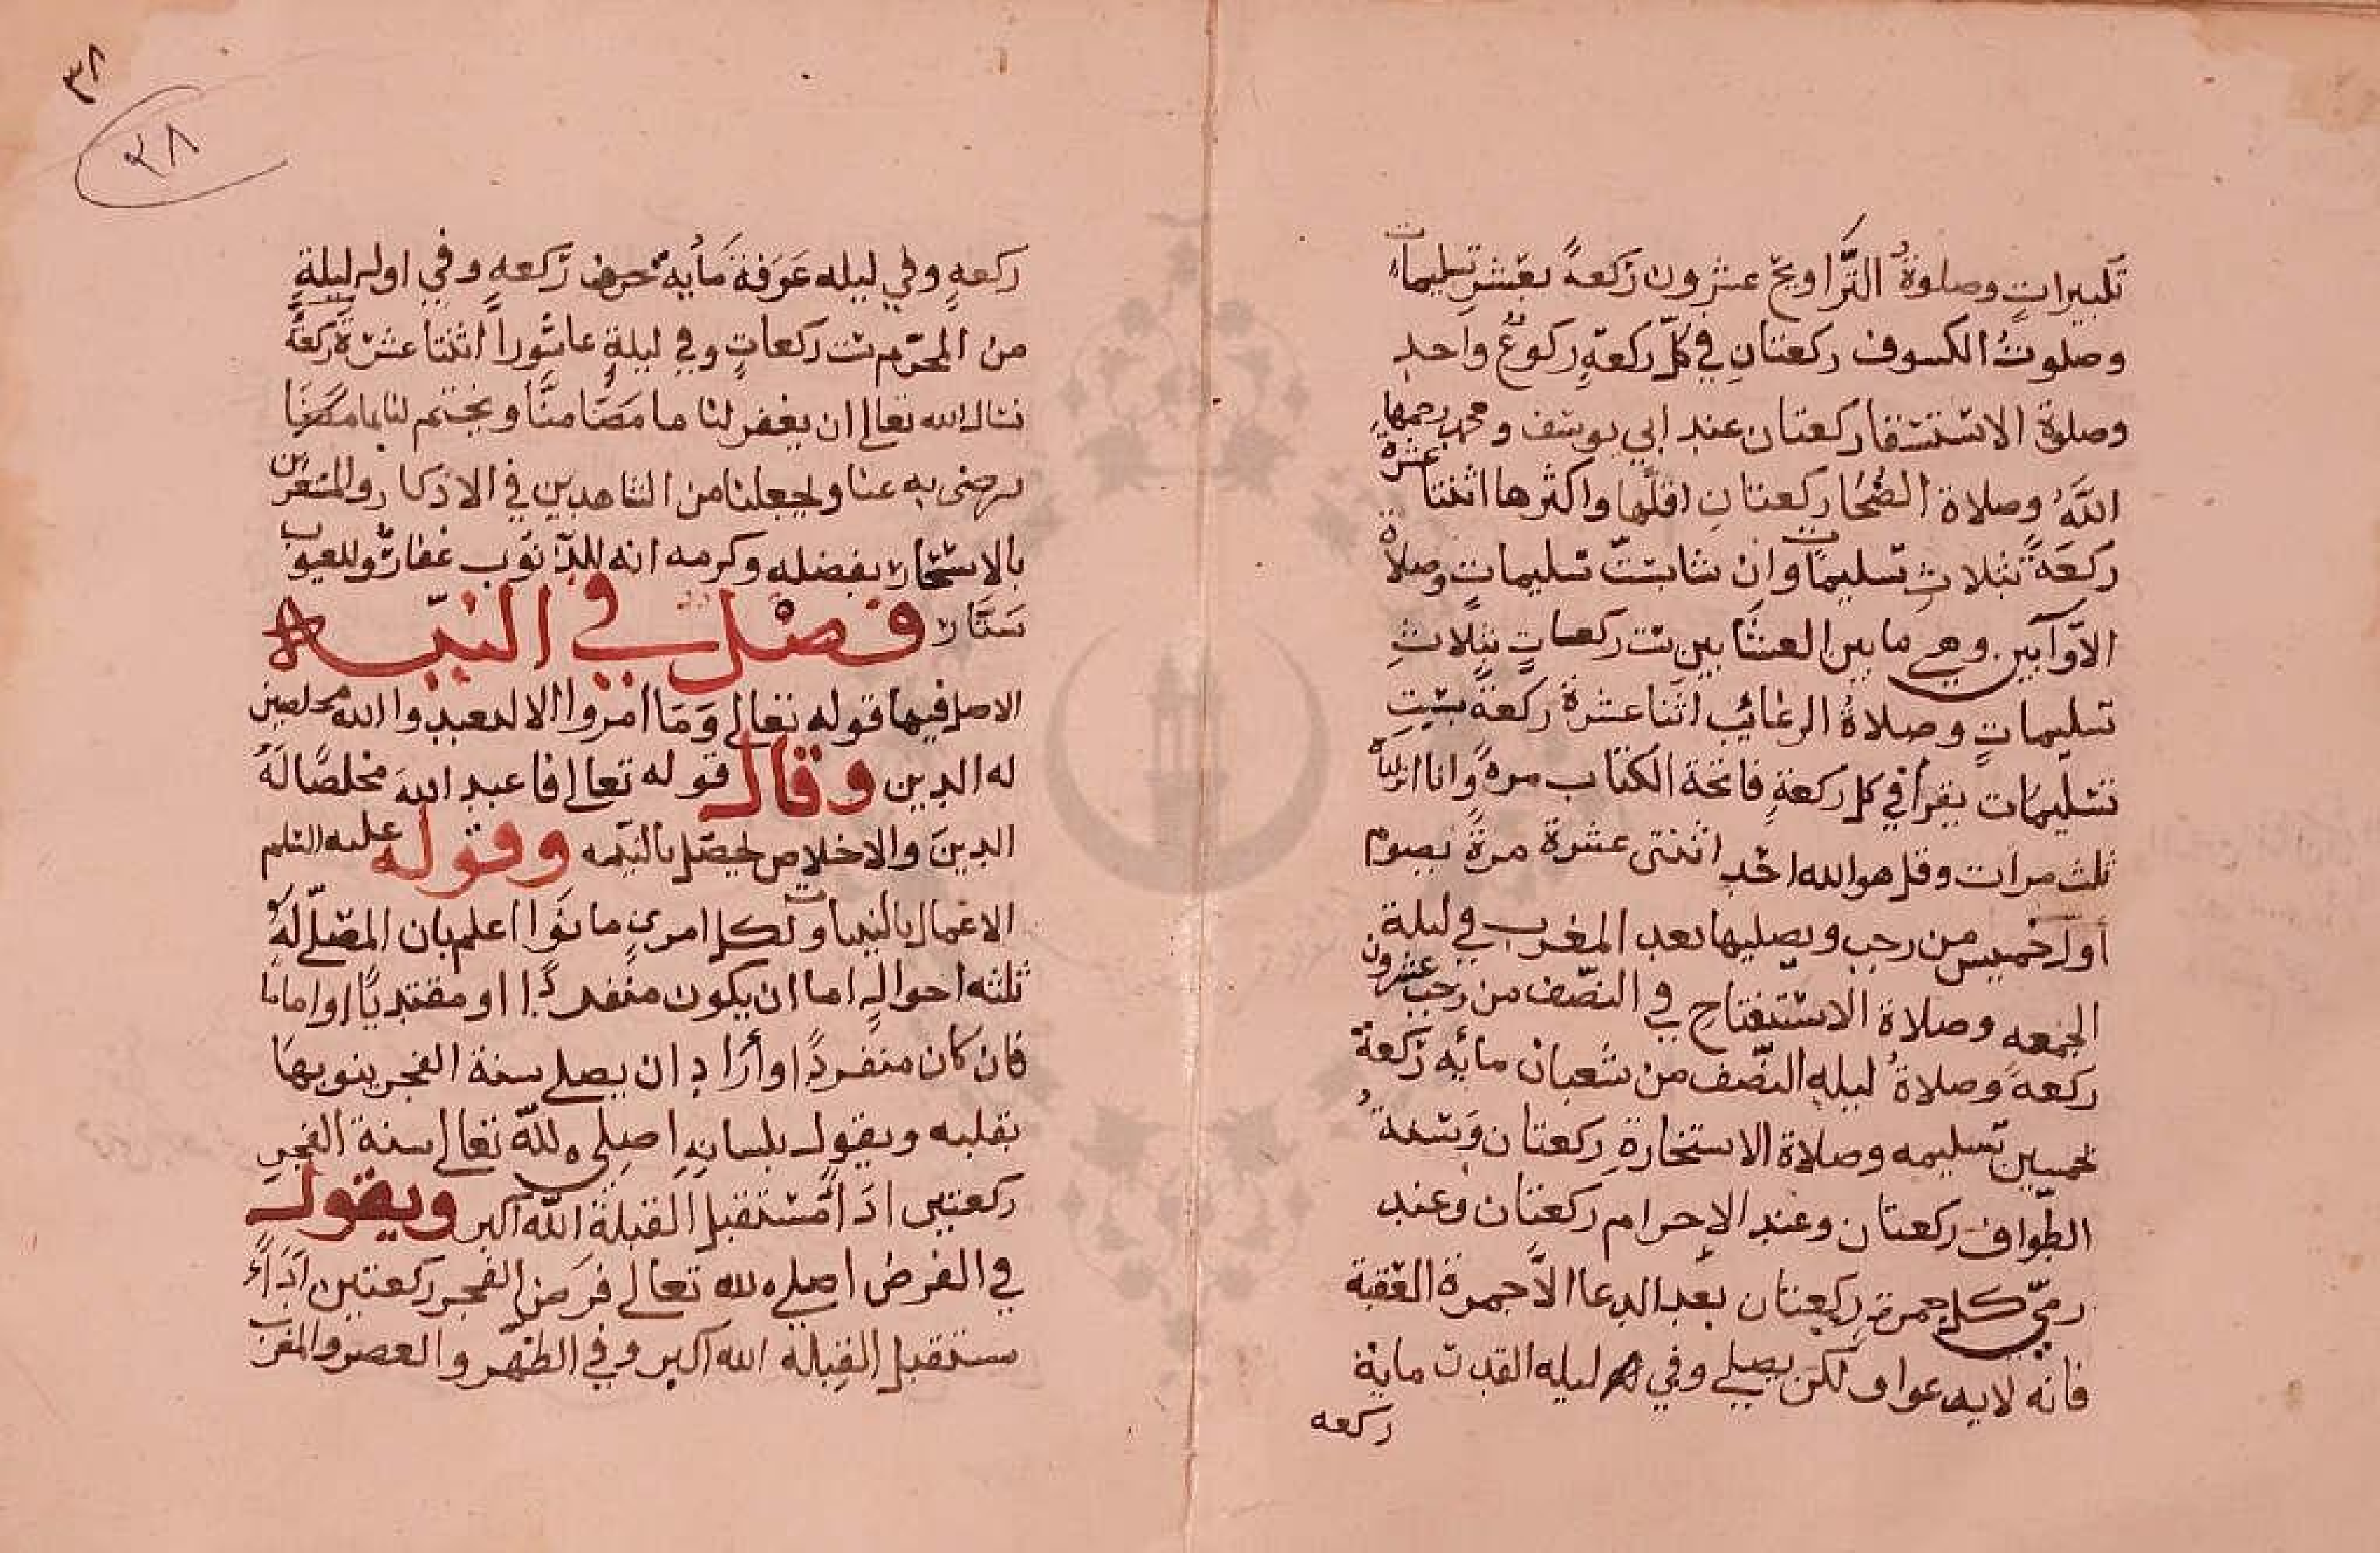 تكبيرات وصلوة التراويح عشرون ركعة بعشر تسليمات
وصلوت الكسوف ركعتان في كل ركعة ركوع واحد
وصلوة الاستسقا ركعتان عند ابي يوسف ومحمد رحمهما
الله وصلاة الضحا ركعتان اقلها واكثرها اثنتا عشرة
ركعة بثلاث تسليمات وان شا بست تسليمات وصلاة
الاوآبين وهي ما بين العشابين ست ركعات بثلاث
تسليمات وصلاة الرغائب اثنا عشرة ركعة بست
تسليمات يقرا في كل ركعة فاتحة الكتاب مرة وانا انزلناه
ثلث مرات وقل هو الله احد اثنتى عشرة مرة يصوم
اول خميس من رجب ويصليها بعد المغرب في ليلة
الجمعه وصلاة الاستفتاح في النصف من رجب عشرون
ركعة وصلاة ليله النصف من شعبان مائه ركعة
بخمسين تسليمه وصلاة الاستخارة ركعتان وسنة
الطواف ركعتان وعند الإحرام ركعتان وعند
رمي كل جمرة ركعتان بعد الدعا الا جمرة العقبة
فانه لا يدعوا ولكن يصلي وفي ليله القدر ماية
ركعه
٣٨
٢٨
ركعه وفي ليله عرفة مأية ركعه وفي اول ليلة
من المحرم ست ركعات وفي ليلة عاشورا اثنتا عشرة ركعة
نسال الله تعالى ان يغفر لنا ما مضا منا ويختم لنا بما
يرضى به عنا ويجعلنا من الشاهدين في الاذكار والمستغفرين
بالاسحار بفضله وكرمه انه للذنوب غفار وللعيوب
ستار فصل في النيه
الاصل فيها قوله تعالى وما امروا الا ليعبدوا الله مخلصين
له الدين وقال قوله تعالى فاعبد الله مخلصا له
الدين والاخلاص يحصل بالنيه وقوله عليه السلم
الاعمال بالنيات ولكل امرئ ما نوا اعلم بان المصلي له
ثلثه احوال اما ان يكون منفردا او مقتديا او اماما
فان كان منفردا واراد ان يصلي سنة الفجر ينويها
بقلبه ويقول بلسانه اصلي لله تعالى سنة الفجر
ركعتين اداء مستقبل القبلة الله اكبر ويقول
في الفرض اصلي لله تعالى فرض الفجر ركعتين اداء
مستقبل القبلة الله اكبر وفي الظهر والعصر والمغرب